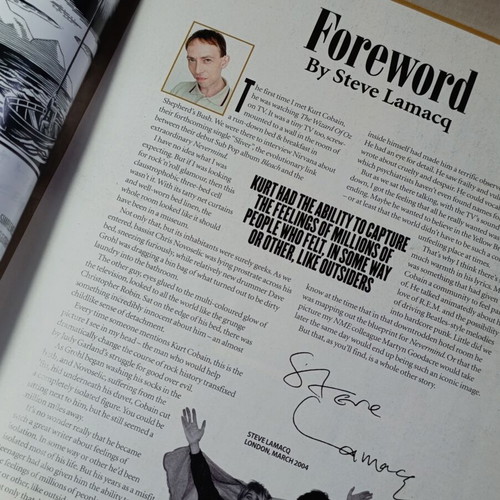 Foreword
By Steve Lamacq
The first time I met Kurt Cobain,
he was watching The Wizard Of Oz
on TV. It was a tiny TV too, screw-
mounted to a wall in the room of
a run-down bed & breakfast in
Shepherd's Bush. We were there to interview Nirvana about
their forthcoming single "Sliver", the evolutionary link
between their debut Sub Pop album Bleach and the
extraordinary Nevermind.
I have no idea what I was
expecting. But if I was looking
for rock'n'roll glamour, then this
claustrophobic three-bed cell
wasn't it. With its tatty net curtains
and well-worn bed linen, the
whole room looked like it should
have been in a museum.
Not only that, but its inhabitants were surely geeks. As we
entered, bassist Chris Novoselic was lying prostrate across his
bed, sneezing furiously, while relatively new drummer Dave
Grohl was dragging a bin bag of what turned out to be dirty
laundry into the bathroom.
The other guy, eyes glued to the multi-coloured glow of
the television, looked to all the world like the grunge
Christopher Robin. Sat on the edge of his bed, there was
something incredibly innocent about him – an almost
childlike sense of detachment.
Every time someone mentions Kurt Cobain, this is the
picture I see in my head – the man who would help
dramatically change the course of rock history transfixed
by Judy Garland's struggle for good over evil.
As Grohl began washing his socks in the
and Novoselic, suffering from the
hid underneath his duvet, Cobain cut
completely isolated figure. You could be
sitting next to him, but he still seemed a
million miles away.
It's no wonder really that he became
such a great writer about feelings of
isolation. In some way or other he'd been
isolated most of his life. But his years as a misfit
teenager had also given him the ability to
KURT HAD THE ABILITY TO CAPTURE
THE FEELINGS OF MILLIONS OF
PEOPLE WHO FELT, IN SOME WAY
OR OTHER, LIKE OUTSIDERS
inside himself had made him a terrific
He had an eye for detail. He was witty and
wrote about cruelty and despair. He could
which psychiatrists haven't even found
But as we sat there talking, with the TV's sound
down, I got the feeling that all he really wanted was
ending. Maybe he wanted to believe in the yellow
– or at least that the world didn't have to be such a
unfeeling place at times.
That's why I think there is
much warmth in his lyrics
was something that had
Cobain a community to be
of. He talked animatedly about
love of R.E.M. and the possibility
of driving Beatle-style melodies
into hardcore punk. Little did we
know at the time that in that downtrodden hotel room he
was mapping out the blueprint for Nevermind. Or that the
picture my NME colleague Martyn Goodacre would take
later the same day would end up being such an iconic image.
But that, as you'll find, is a whole other story.
Steve
Lamacq
STEVE LAMACQ
LONDON, MARCH 2004